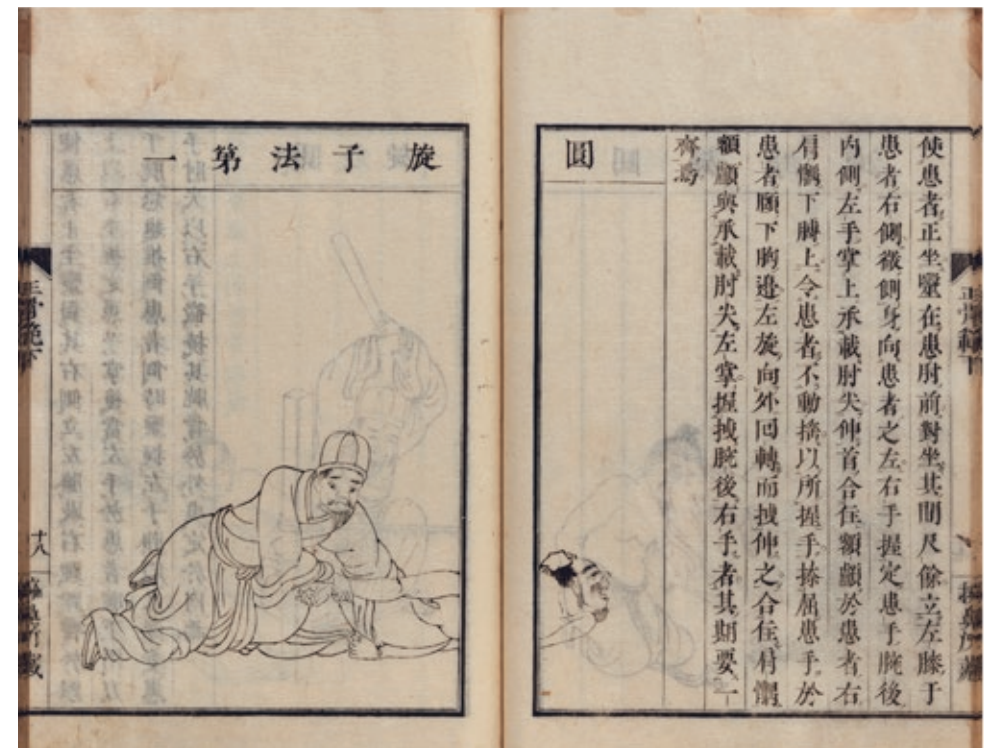 正骨範下
使患者正坐毉在患肘前對坐其間尺餘立左膝于
患者右側微側身向患者之左右手握定患手腕後
內側左手掌上承載肘尖伸首合住額顱於患者右
肩髃下膊上令患者不動搖以所握手捧屈患手於
患者頤下胸邊左旋向外回轉而拽伸之合住肩髃
額顱與承載肘尖左掌握拽腕後右手者其期要一
齊焉
圓
旋子法第一
正骨範下
十八